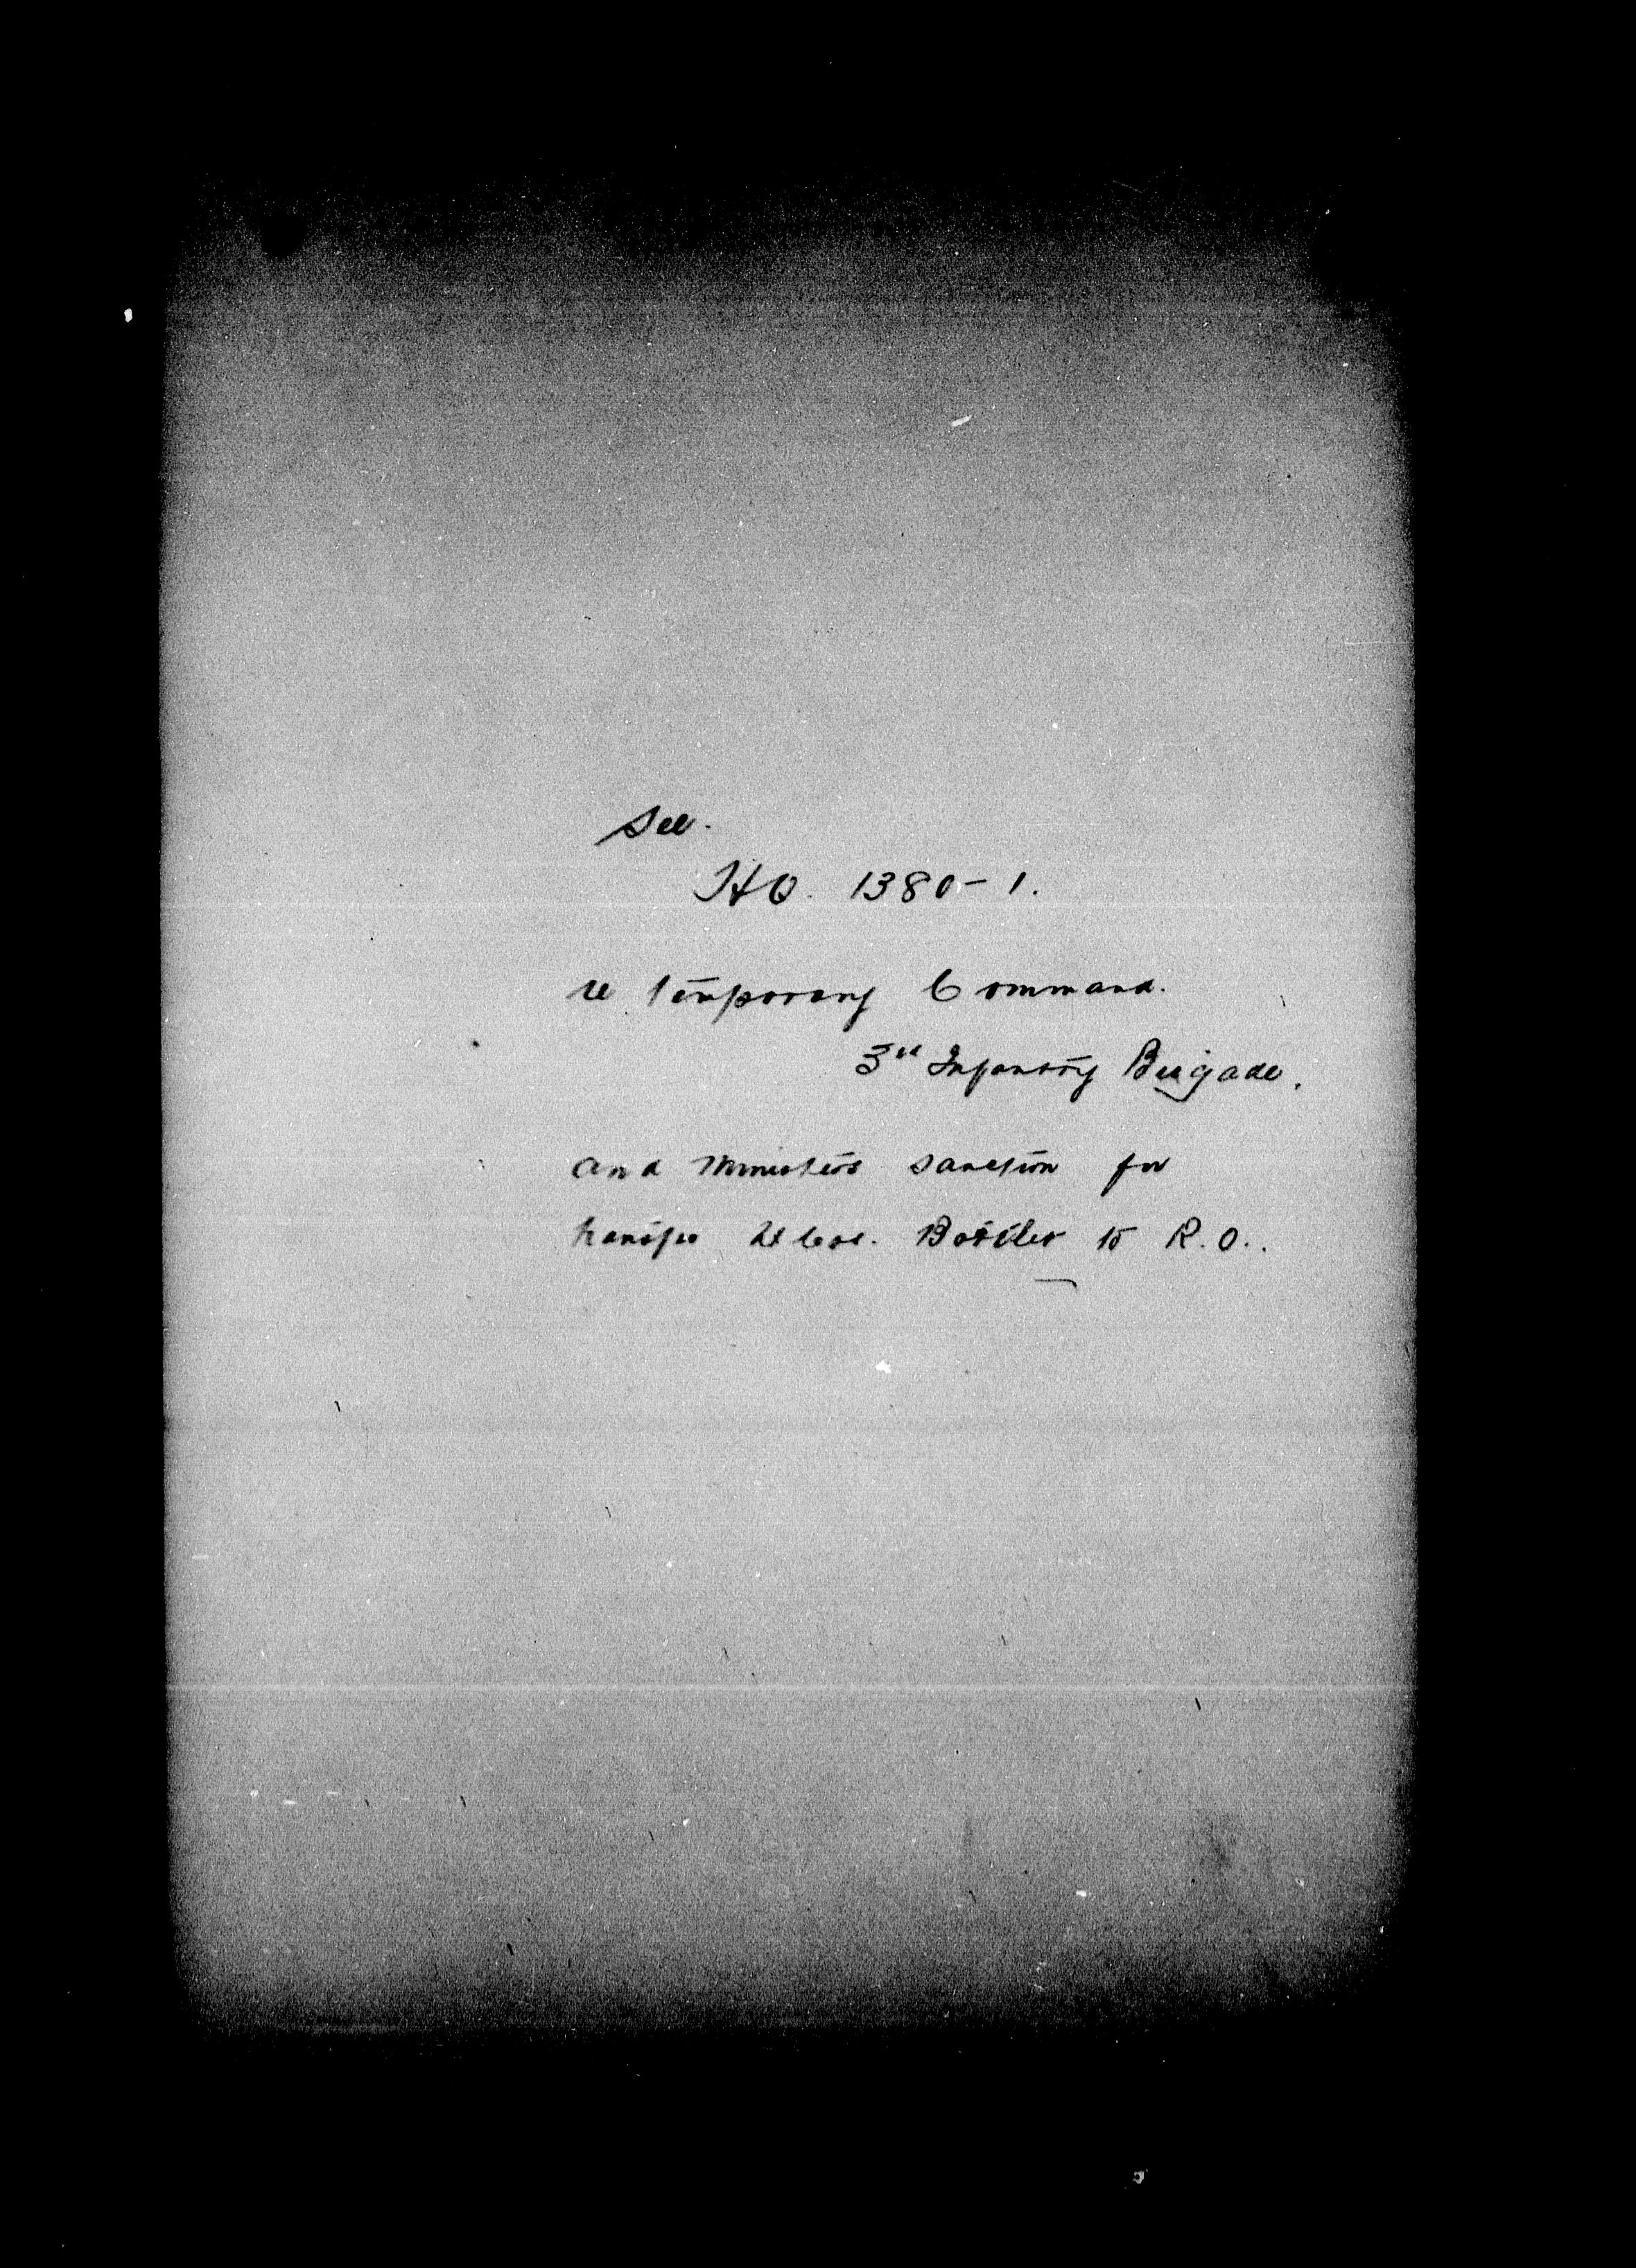 See.
HQ. 1380-1.
re temporary Command.
3rd Infantry Brigade.
and Ministers sanction for
transfer Lt Col. to R.O..